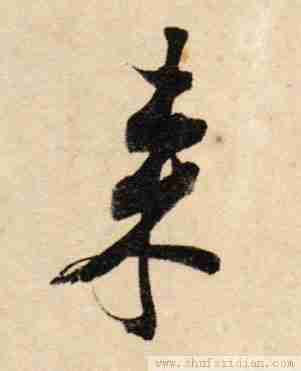 来
www.shufazidian.com